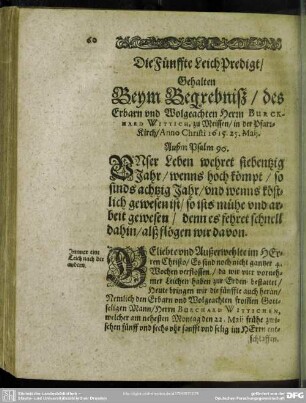 60
Die Fünffte Leich Predigt/
Gehalten
Beym Begrebniß/ des
Erbarn und Wolgeachten Herrn BURCK-
HARD WITTICH, zu Meissen/ in der Pfarr-
Kirch/ Anno Christi 1615. 25. Maij.
Außm Psalm 90.
UNser Leben wehret siebentzig
Jahr/ wenns hoch kömpt/ so
sinds achtzig Jahr/ vnd wenns köst-
lich gewesen ist/ so ists mühe vnd ar-
beit gewesen/ denn es fehret schnell
dahin/ alß flögen wir davon.
Immer eine
Leich nach der
andern.
GEliebte vnd Außerwehlte im HEr-
ren Christo/ Es sind noch nicht gar vier
Wochen verflossen/ da wir vier vorneh-
mer Leichen haben zur Erden bestattet/
Heute bringen wir die fünffte auch heran/
Nemlich den Erbarn vnd Wolgeachten frommen Gott-
seligen Mann/ Herrn BURGHARD WITTICHEN,
welcher am nehesten Montag den 22. Maij frühe zwi-
schen fünff vnd sechs vhr sanfft vnd selig im HErrn ent-
schlaffen.